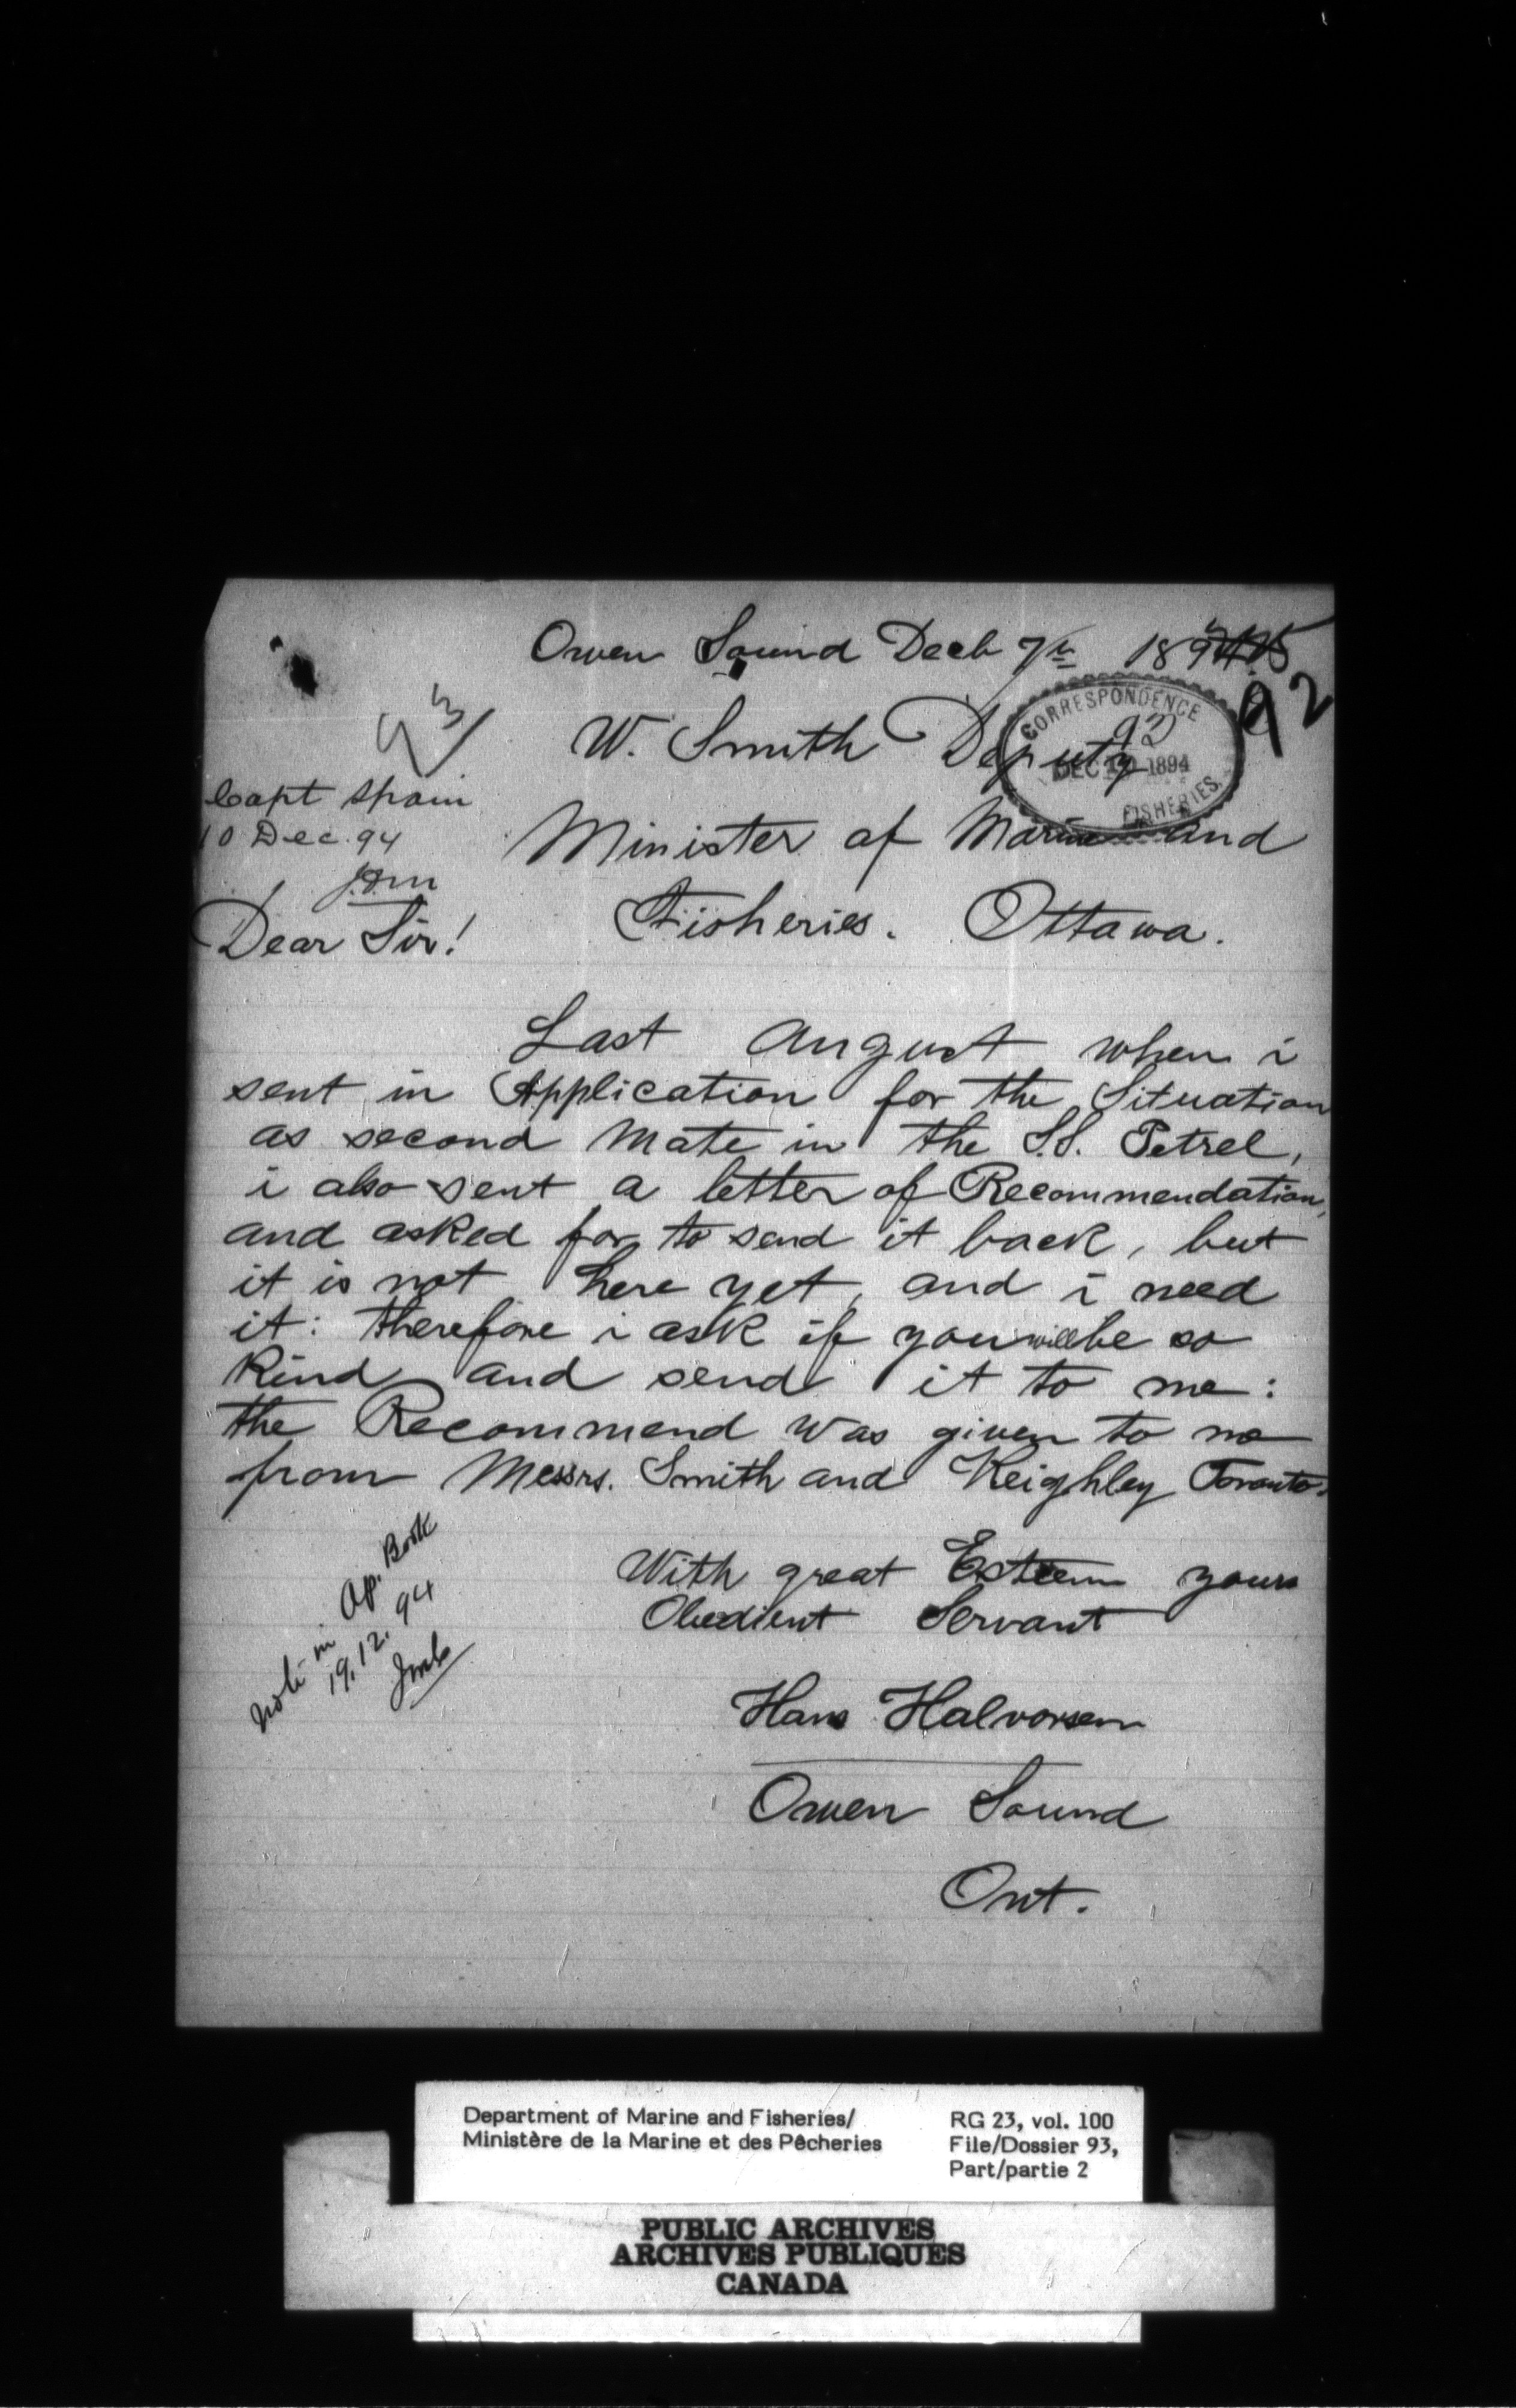 Owen Sound Decb 7th 189
92
CORRESPONDENCE
92
DEC 10 1894
FISHERIES
93
W. Smith Deputy
Capt Spain
10 Dec. 94
Minister of Marine and
Dear Sir!
Fisheries. Ottawa.
Last August when i
sent in Application for the Situation
as second Mate in the S.S. Petrel,
i also sent a letter of Recommendation,
and asked for to send it back, but
it is not here yet, and i need
it: therefore i ask if you will be so
Kind and send it to me:
the Recommend was given to me
from Messrs. Smith and Keighley Toronto.
Note in Ap. Book
19.12.94
With great Esteem yours
Obedient Servant
Hans Halvorsen
Owen Sound
Ont.
Department of Marine and Fisheries/
Ministère de la Marine et des Pêcheries
RG 23, vol. 100
File/Dossier 93,
Part/partie 2
PUBLIC ARCHIVES
ARCHIVES PUBLIQUES
CANADA